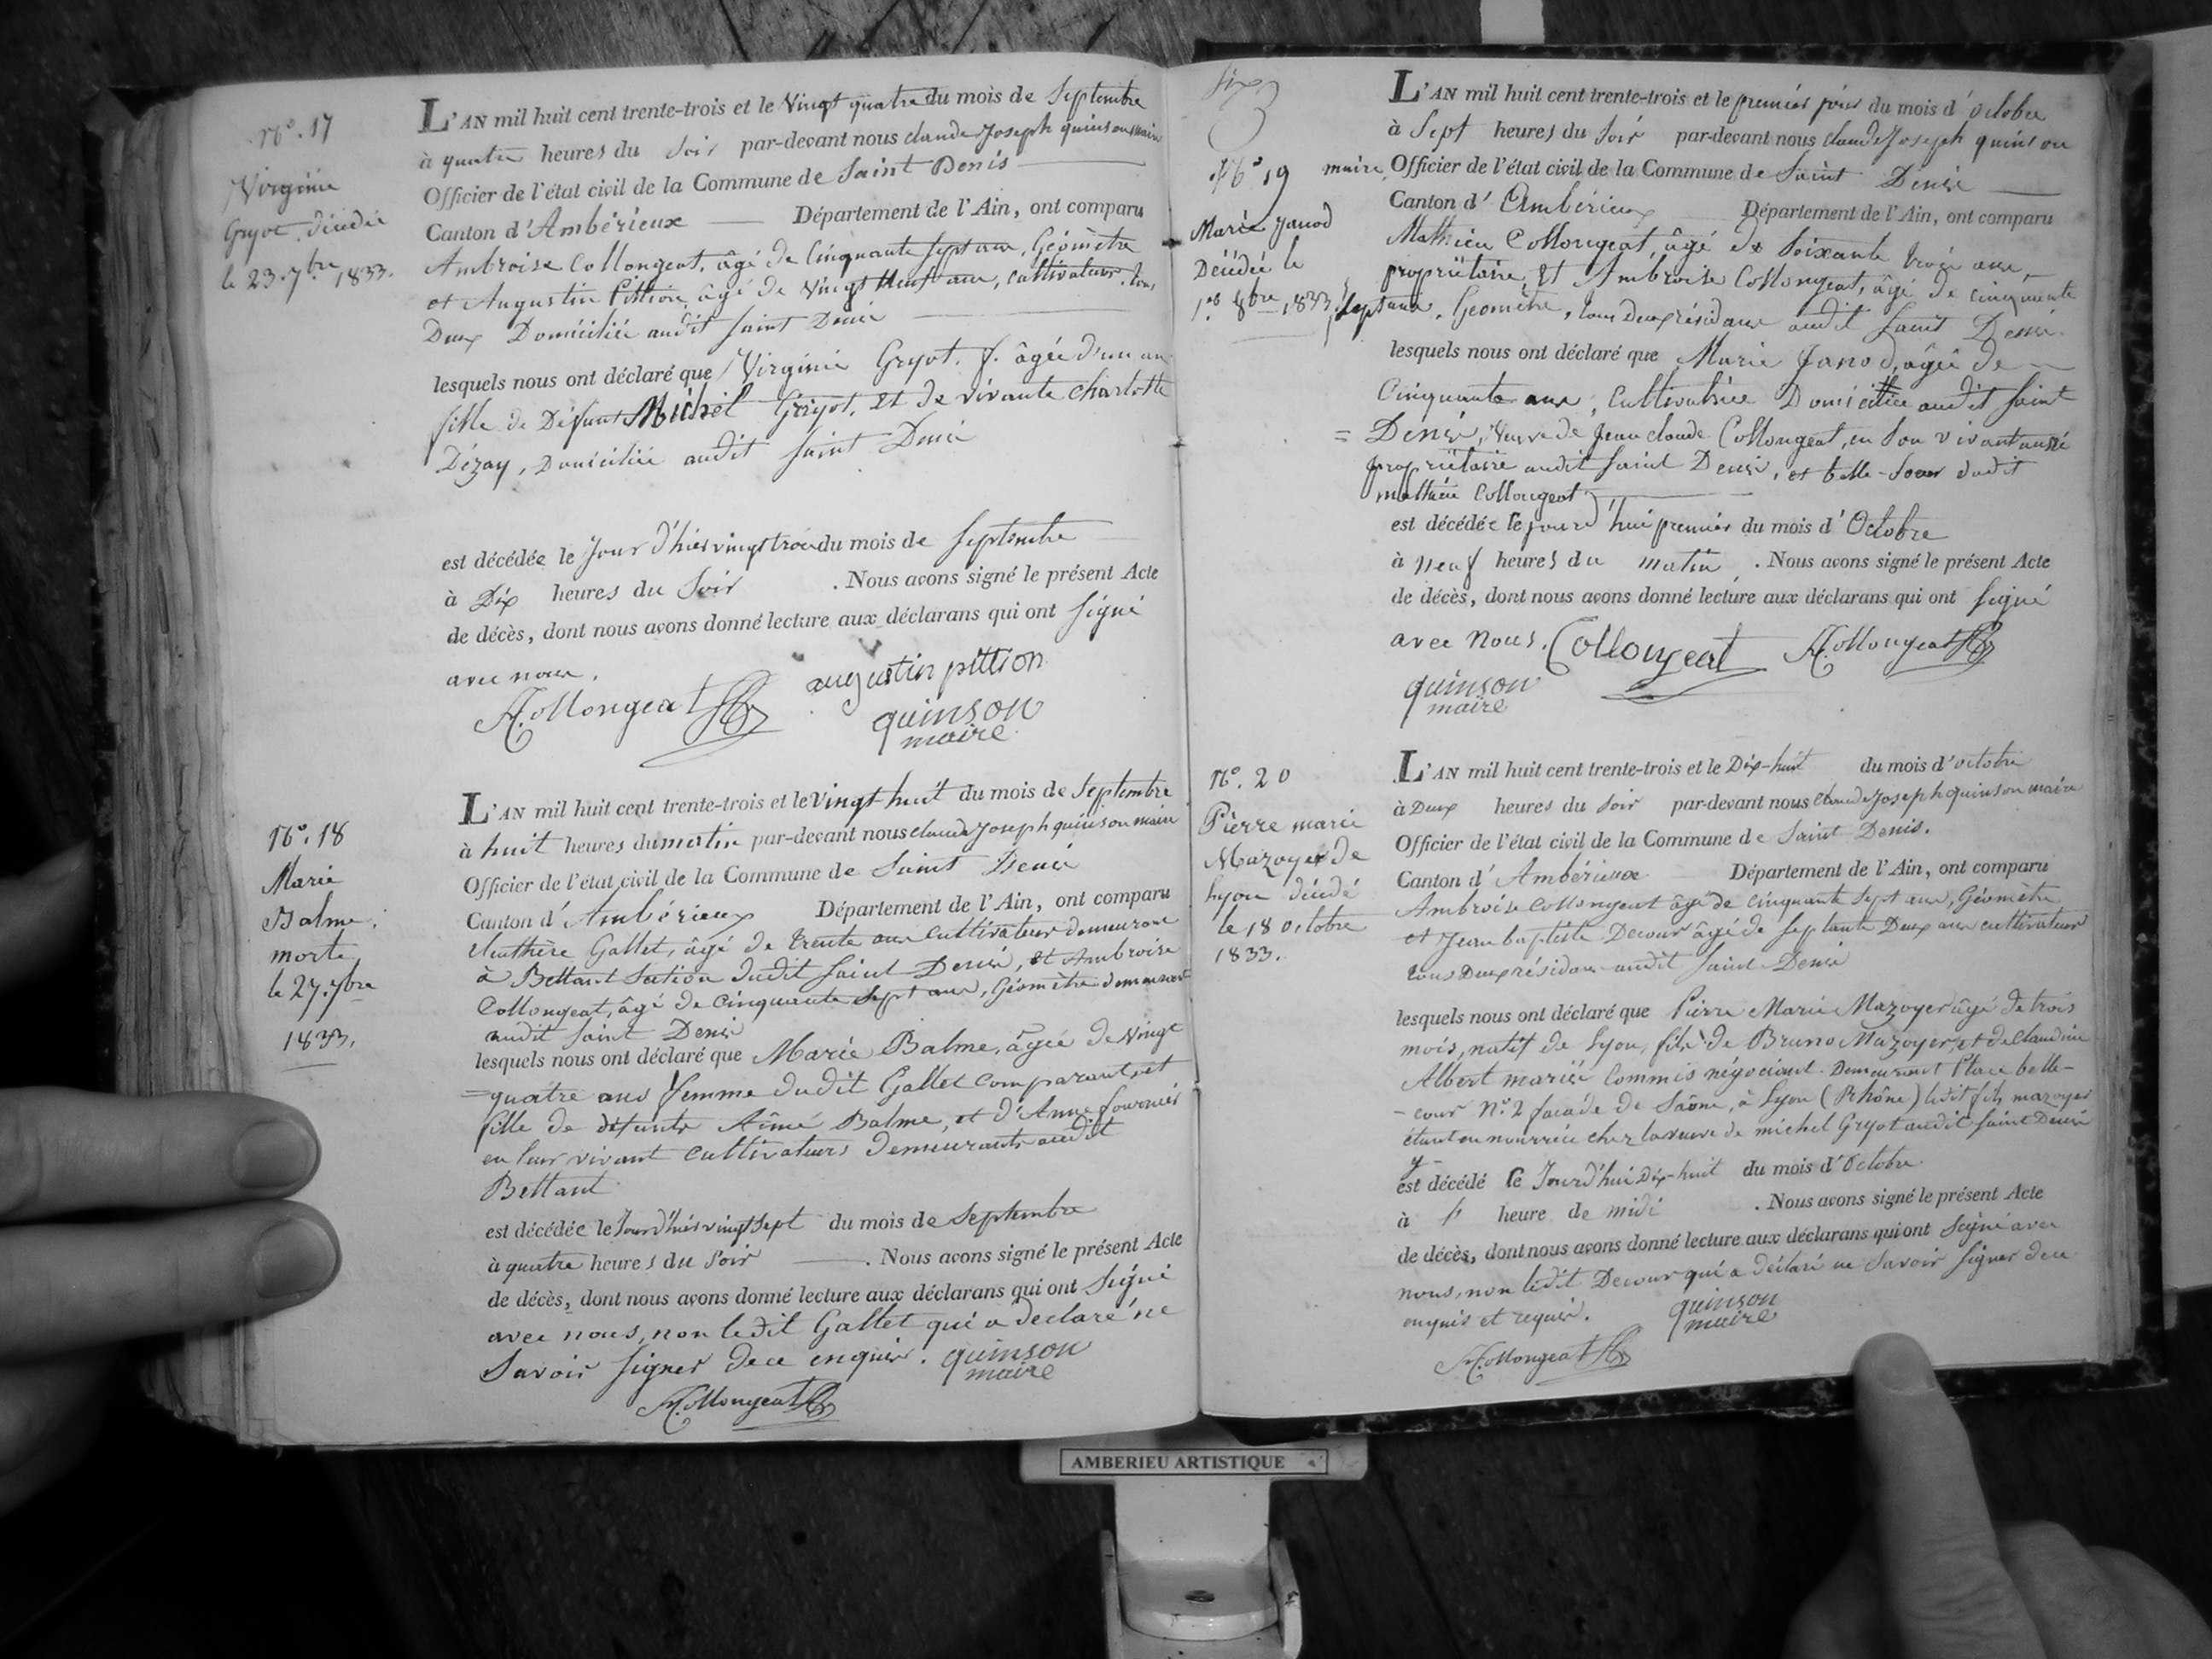 N.° 17
Virginie
Gryot, décédée
le 23. 7.bre 1833.
L'AN mil huit cent trente-trois et le Vingt quatre du mois de Septembre
à quatre heures du Soir par-devant nous claude Joseph quinson maire
Officier de l'état civil de la Commune de Saint Denis
Canton d'Ambérieux Département de l'Ain, ont comparu
Ambroise Collongeat, âgé de Cinquante Sept ans, Géomètre
et Augustin Pittion âgé de Vingt Neuf ans, cultivateur, tous
Deux Domiciliés audit Saint Denis
lesquels nous ont déclaré que Virginie Gryot. f. âgée d'un an
fille de Défunt Michel Gryot, et de vivante Charlotte
Dézay, Domiciliée audit Saint Denis
est décédée le Jour d'hier vingt trois du mois de Septembre
à Dix heures du Soir . Nous avons signé le présent Acte
de décès, dont nous avons donné lecture aux déclarans qui ont signé
avec nous.
A. Collongeat augustin pittion
quinson
maire
N.° 18
Marie
Balme.
morte
le 27. 7bre
1833.
L'AN mil huit cent trente-trois et le Vingt huit du mois de Septembre
à huit heures du matin par-devant nous claude Joseph quinson maire
Officier de l'état civil de la Commune de Saint Denis
Canton d'Ambérieux Département de l'Ain, ont comparu
Eleuthère Gallet, âgé de trente ans cultivateur demeurant
à Bettant Section dudit Saint Denis, et Ambroise
Collongeat, âgé de Cinquante Sept ans, Géomètre demeurant
audit Saint Denis
lesquels nous ont déclaré que Marie Balme, âgée de Vingt
= quatre ans femme dudit Gallet comparant, et
fille de défunts Aimé Balme, et d'Anne fournier
en leur vivant Cultivateurs Demeurants audit
Bettant
est décédée le Jour d'hier vingt Sept du mois de Septembre
à quatre heures du Soir . Nous avons signé le présent Acte
de décès, dont nous avons donné lecture aux déclarans qui ont Signé
avec nous, non ledit Gallet qui a déclaré ne
Savoir Signer de ce enquis. quinson
maire
A. Collongeat
N.° 19
Marie Janod
Décédée le
1.er 8bre 1833
L'AN mil huit cent trente-trois et le premier jour du mois d'octobre
à Sept heures du Soir par-devant nous claude Joseph quinson
maire, Officier de l'état civil de la Commune de Saint Denis
Canton d'Ambérieux Département de l'Ain, ont comparu
Mathieu Collongeat, âgé de Soixante trois ans,
propriétaire, Et Ambroise Collongeat, âgé de cinquante
Sept ans, Géomètre, tous Deux résidans audit Saint Denis
lesquels nous ont déclaré que Marie Janod, âgée de
Cinquante ans, Cultivatrice Domiciliée audit Saint
= Denis, Veuve de Jean claude Collongeat, en Son vivant aussi
propriétaire audit Saint Denis, et belle-Soeur dudit
mathieu Collongeat
est décédée le jourd'hui premier du mois d'Octobre
à Neuf heures du matin . Nous avons signé le présent Acte
de décès, dont nous avons donné lecture aux déclarans qui ont Signé
avec Nous. Collongeat A. Collongeat
quinson
maire
N.° 20
Pierre marie
Mazoyer de
Lyon décédé
le 18 octobre
1833.
L'AN mil huit cent trente-trois et le Dix-huit du mois d'octobre
à Deux heures du Soir par-devant nous claude Joseph quinson maire
Officier de l'état civil de la Commune de Saint Denis.
Canton d'Ambérieux Département de l'Ain, ont comparu
Ambroise Collongeat âgé de cinquante Sept ans, Géomètre
et Jean baptiste Decour âgé de Septante Deux ans cultivateur
tous Deux résidans audit Saint Denis
lesquels nous ont déclaré que Pierre Marie Mazoyer âgé de trois
mois, natif de Lyon, fils de Bruno Mazoyer, et de Claudine
Albert mariés Commis négociant. Demeurant Place belle-
- cour N.° 2 façade de Saône, à Lyon (Rhône) ledit fils mazoyer
étant en nourrice chez la veuve de michel Gryot audit Saint Denis
y
est décédé le Jourd'hui Dix-huit du mois d'Octobre
à heure de midi . Nous avons signé le présent Acte
de décès, dont nous avons donné lecture aux déclarans qui ont Signé avec
nous, non ledit Decour qui a déclaré ne Savoir Signer de ce
enquis et requis. quinson
maire
A. Collongeat
AMBERIEU ARTISTIQUE